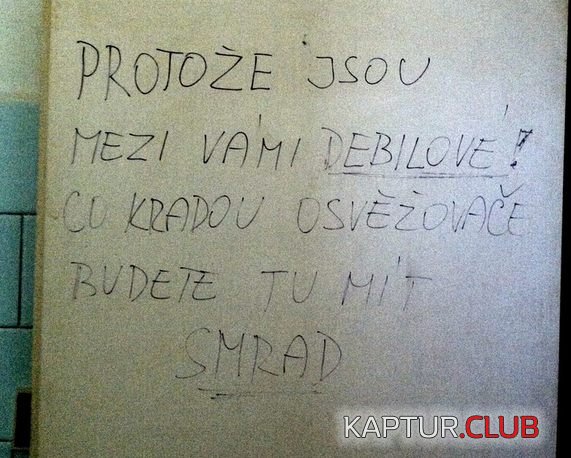 PROTOŽE JSOU
MEZI VÁMI DEBILOVÉ!
CO KRADOU OSVĚŽOVAČE
BUDETE TU MÍT
SMRAD
KAPTUR.CLUB